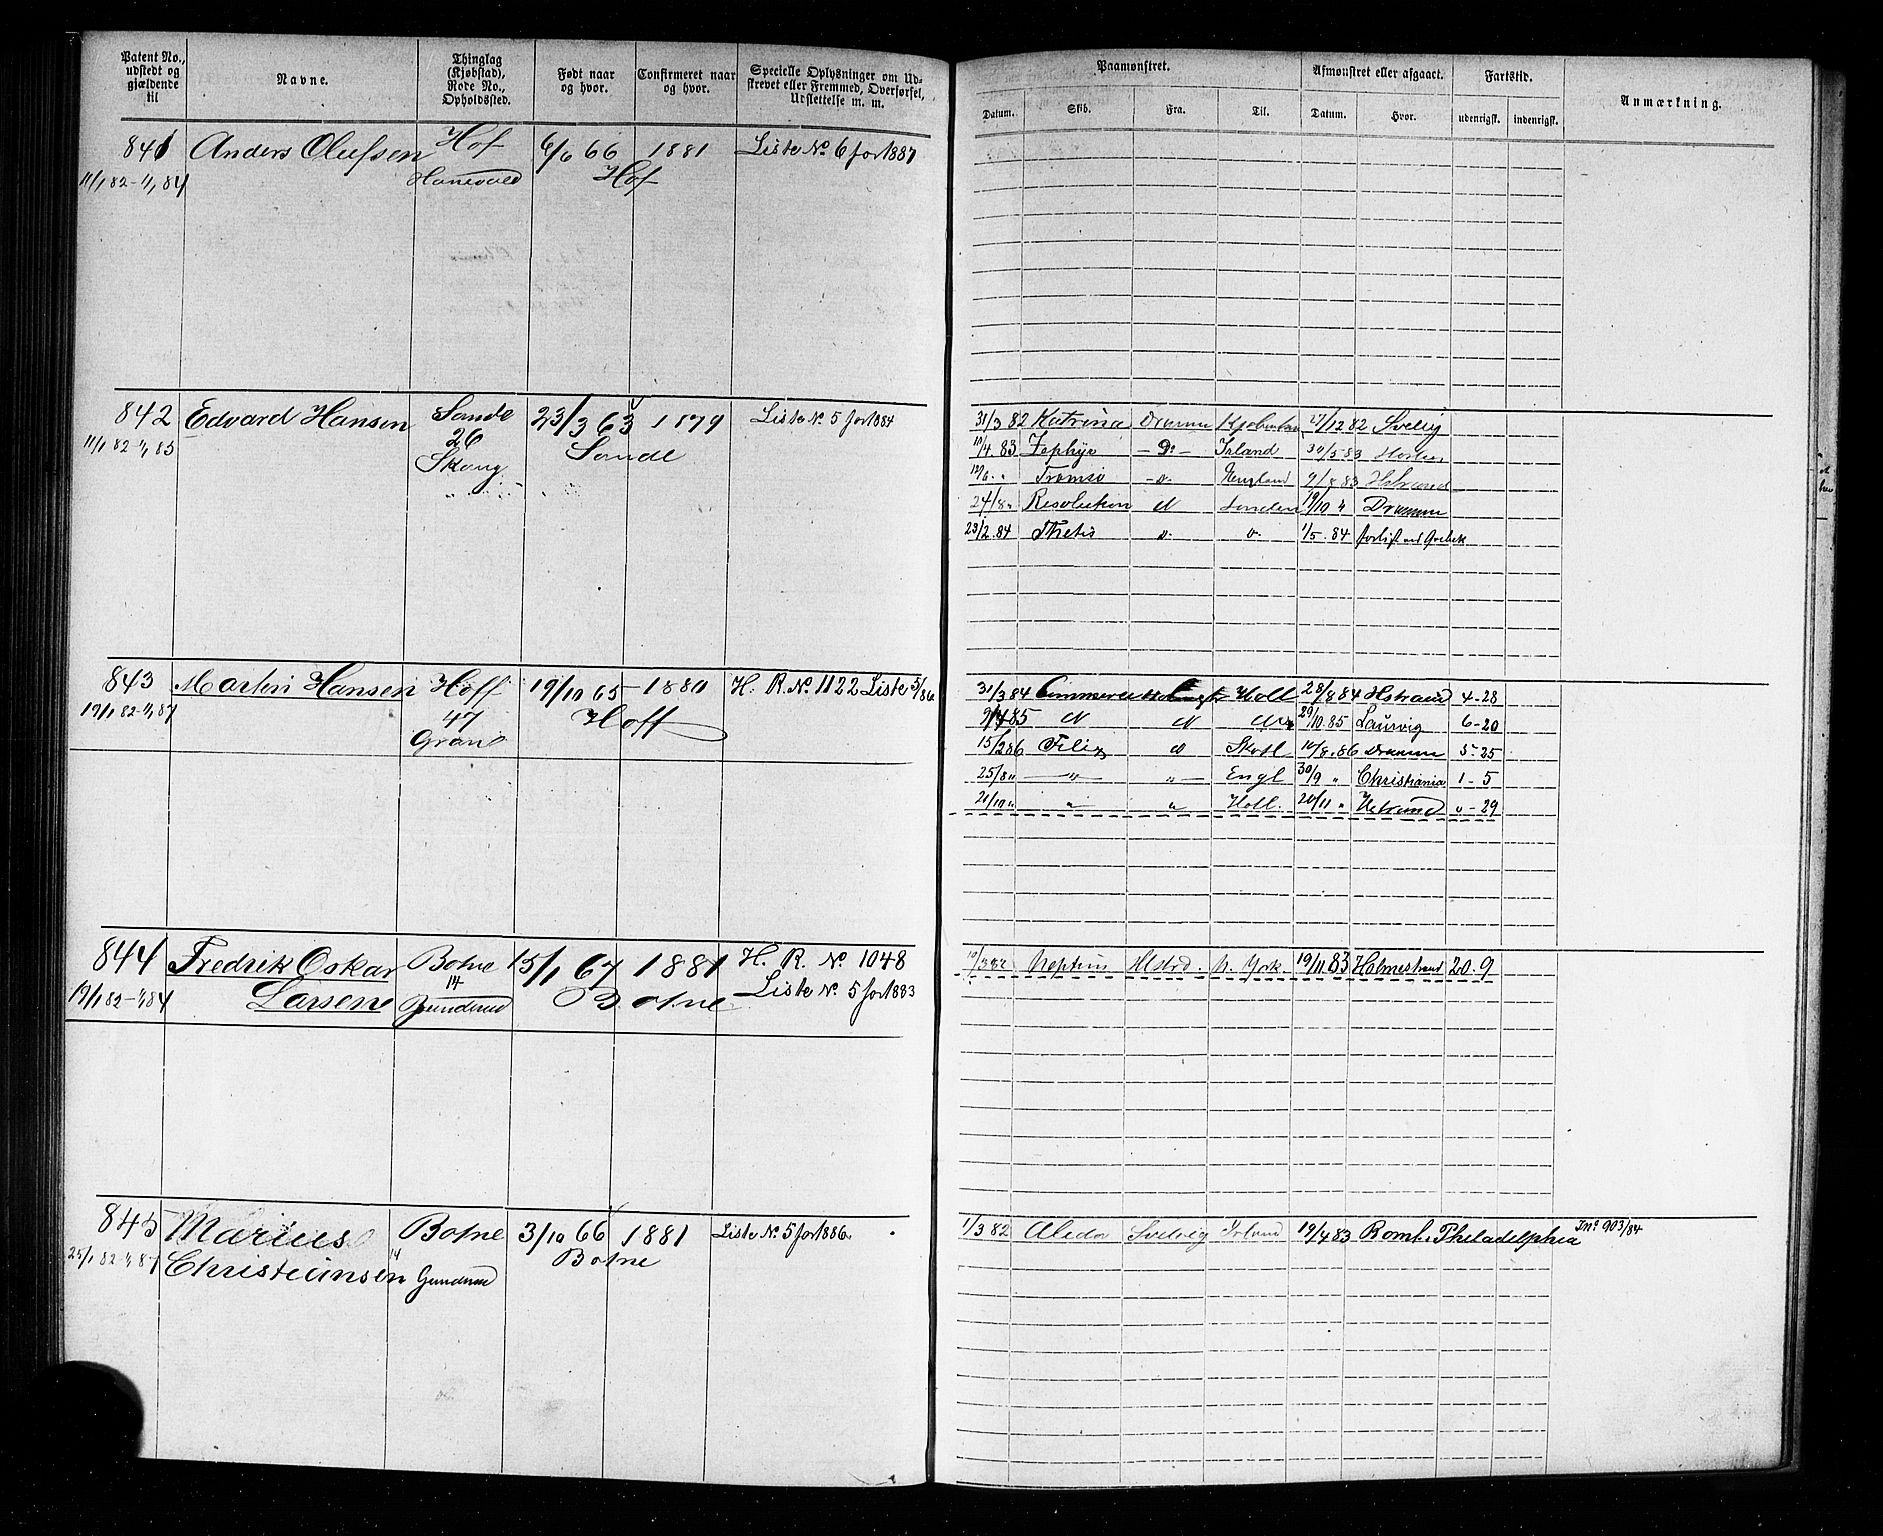 Patent No., udstedt og gjældende til
Navne.
Thinglag (Kjøbstad), Rode No., Opholdssted.
Født naar og hvor.
Confirmeret naar og hvor.
Specielle Oplysninger om Udskrevet eller Fremmed, Overførsel, Udslettelse m. m.
Paamønstret.
Datum. Skib. Fra. Til.
Afmønstret eller afgaaet.
Datum. Hvor.
Fartstid.
udenrigsk. indenrigsk.
Anmærkning.
841 Anders Olufsen Hof 6/6 66 1881 Liste No. 6 for 1887
11/1 82 - 1/1 84 Hof
842 Edvard Hansen Sande 23/3 63 1879 Liste No. 5 for 1884
11/1 82 - 1/1 85 26 Sande
Skoug
31/3 82 Katrina Dramm 17/12 82 Svelvig
10/4 83 Zephyr - Do - Irland 30/5 83 Horten
12/6 " Tromsø - o - England 9/8 83 Hstrand
24/8 " Resolution d London 19/10 " Dramm
23/2 84 Thetis o o 1/5 84
843 Martin Hansen Hoff 19/10 65 1880 H. R. No. 1122 Liste 5/86
19/1 82 - 1/1 87 47 Hoff
Grane
31/3 84 Holl 28/8 84 Hstrand 4-28
9/4 85 d d d 29/10 85 Laurvig 6-20
15/2 86 Felix d Skotl 10/8 86 Dramm 5-25
25/8 " - " - " - Engl 30/9 " Christiania 1-5
21/10 " " " Holl. 20/11 " Hstrand " - 29
844 Fredrik Oskar Botne 15/1 67 1881 H. R. No. 1048
19/1 82 - 1/1 84 Larsen 14 Botne Liste No. 5 for 1883
Gunderud
10/3 82 Neptun Hstrd. N. York. 19/11 83 Holmestrand 20. 9
845 Marius Botne 3/10 66 1881 Liste No. 5 for 1886.
25/1 82 - 1/1 87 Christiansen 14 Gunderud Botne
1/3 82 Aleda Svelvig Irland 19/4 83 Romt. i Philadelphia Jno. 903/84